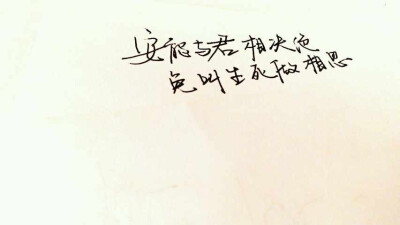 安能与君相决绝
免叫生死做相思